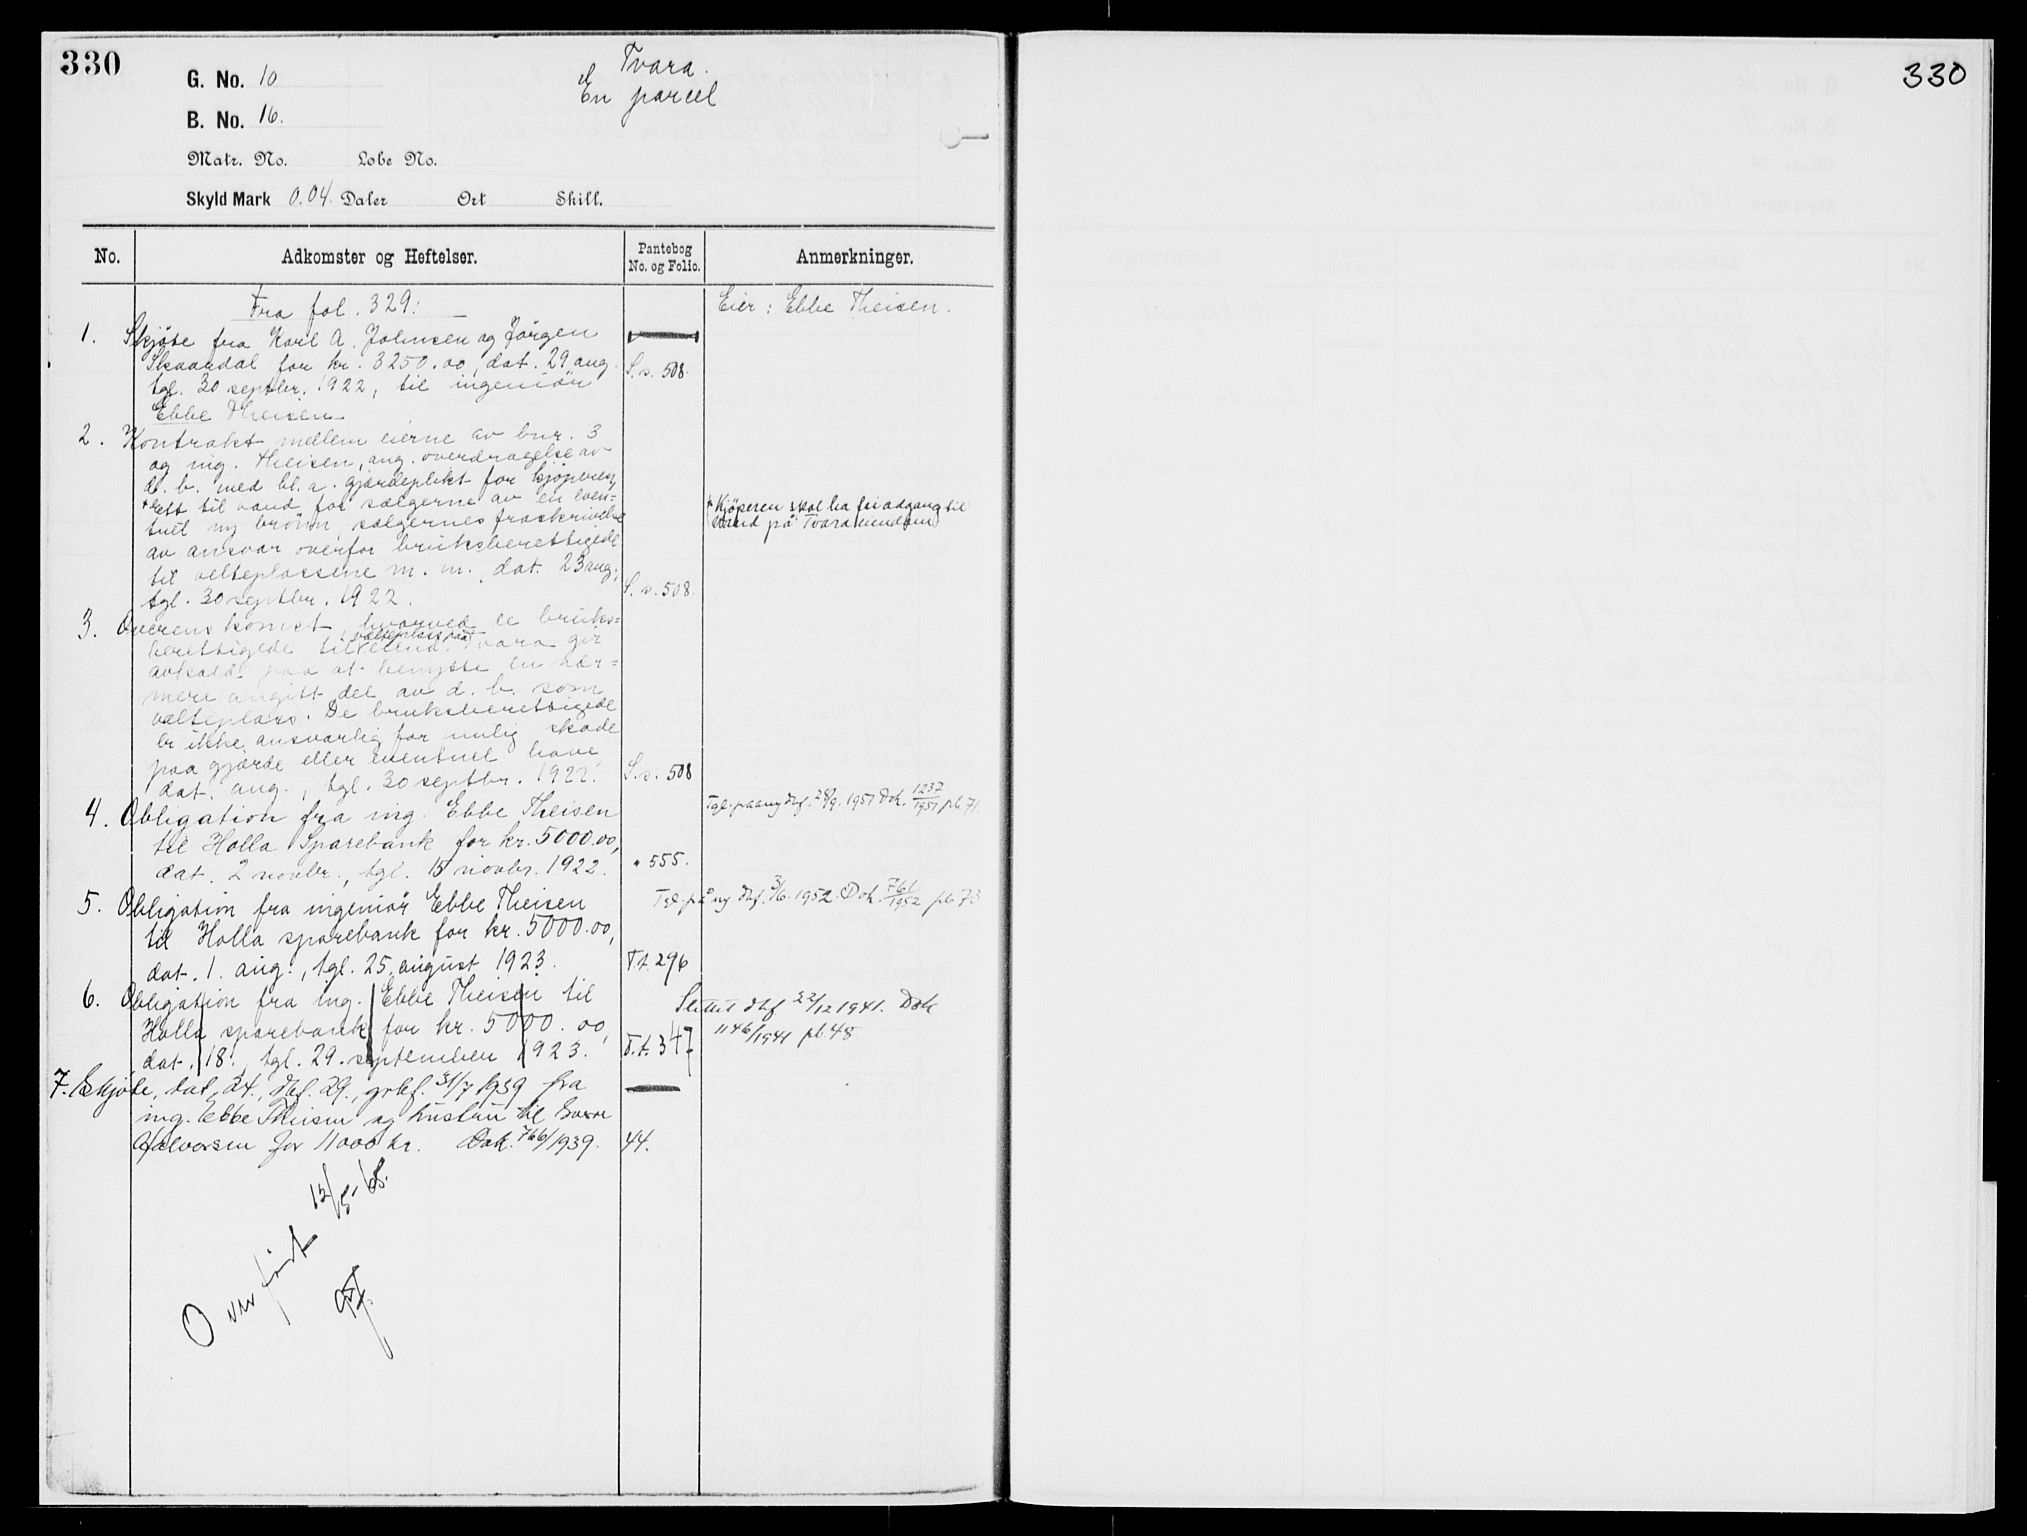 330
Tvara.
En parcel
G. No. 10
B. No. 16.
Matr. No. Lobe No.
Skyld Mark 0.04. Daler Ort Skill.
No. Adkomster og Heftelser. Pantebog No. og Folio. Anmerkninger.
Fra fol. 329:
Eier: Ebbe Theisen.
1. Skjöte fra Karl A. Johnsen og Jörgen
Skaardal for kr. 3250.00, dat. 29 aug.
tgl. 30 septbr. 1922, til ingeniör
Ebbe Theisen
S. s. 508.
2. Kontrakt mellem eierne av bnr. 3
og ing. Theisen, ang. overdragelse av
d. b. med bl. a. gjærdeplikt for kjöperen,
* rett til vand for sælgerne av en even=
tuel ny brönn, sælgernes fraskrivelse
av ansvar overfor bruksberettigede
til velteplassene m. m., dat. 23 aug.,
tgl. 30 septbr. 1922.
S. s. 508.
* Kjöperen skal ha fri adgang til
vand på Tvara eiendom
3. Overenskomst hvorved de bruks=
berettigede til velteplass paa eiend. Tvara gir
avkald paa at benytte en nær=
mere angitt del av d. b. som
velteplass. De bruksberettigede
er ikke ansvarlig for mulig skade
paa gjærde eller eventuel have,
dat. aug., tgl. 30 septbr. 1922.
S. s. 508
4. Obligation fra ing. Ebbe Theisen
til Holla Sparebank for kr. 5000.00,
dat. 2 novbr., tgl. 15 novbr. 1922.
" 555.
Tgl. paa ny dbf. 28/9. 1951 Dok. 1237/1951 pb. 71.
5. Obligation fra ingeniör Ebbe Theisen
til Holla sparebank for kr. 5000.00,
dat. 1. aug., tgl. 25. august 1923.
T. t. 296
Tgl. på ny dbf. 3/6. 1952. Dok. 761/1952 pb. 73
6. Obligation fra ing. Ebbe Theisen til
Holla sparebank for kr. 5000.00,
dat. 18., tgl. 29. september 1923.
T. t. 347
Slettet dbf 22/12 1941. Dok
1146/1941 pb. 48
7. Skjöte, dat. 24., dbf. 29., grbf. 31/7 1939 fra
ing. Ebbe Theisen og hustru til
Halvorsen for 11000 kr. Dok. 766/1939.
44.
Overfört 13/5-68.
330